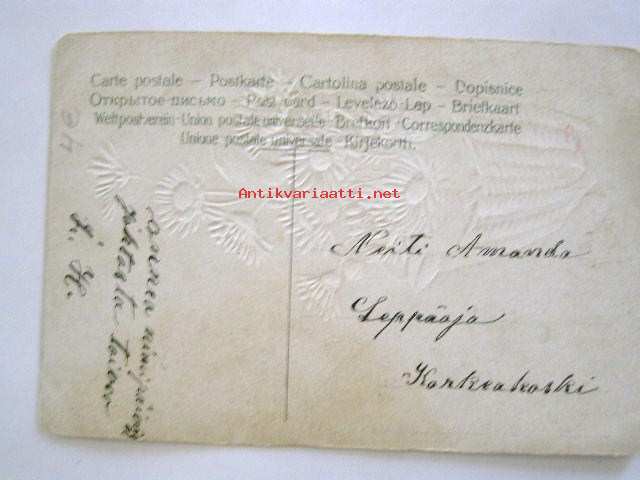 Carte postale – Postkarte – Cartolina postale – Dopisnice
Открытое письмо – Post card – Levelező-Lap – Briefkaart
Weltpostverein-Union postale universelle-Brefkort-Correspondenzkarte
Unione postale universale – Kirjekortti.
Antikvariaatti.net
Neiti Amanda
Leppäoja
Korkeakoski
onnea nimipäivä